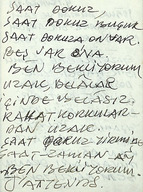 SAAT DOKUZ,
SAAT DOKUZ BUÇUK
SAAT DOKUZA ON VAR.
BEŞ VAR ONA.
BEN BEKLİYORUM
UZAK, BELALAR
İÇİNDE BELASIZ.
RAHAT, KORKULAR-
DAN UZAK.
SAAT DOKUZ YİRMİ
SAAT-ZAMAN AY
BEN BEKLİYORUM